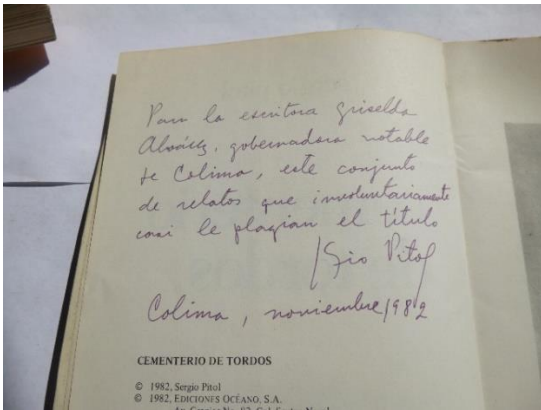 Para la escritora Griselda
Alvárez, gobernadora notable
de Colima, este conjunto
de relatos que involuntariamente
casi le plagian el título
Sergio Pitol
Colima, noviembre 1982
CEMENTERIO DE TORDOS
© 1982, Sergio Pitol
© 1982, EDICIONES OCÉANO, S.A.